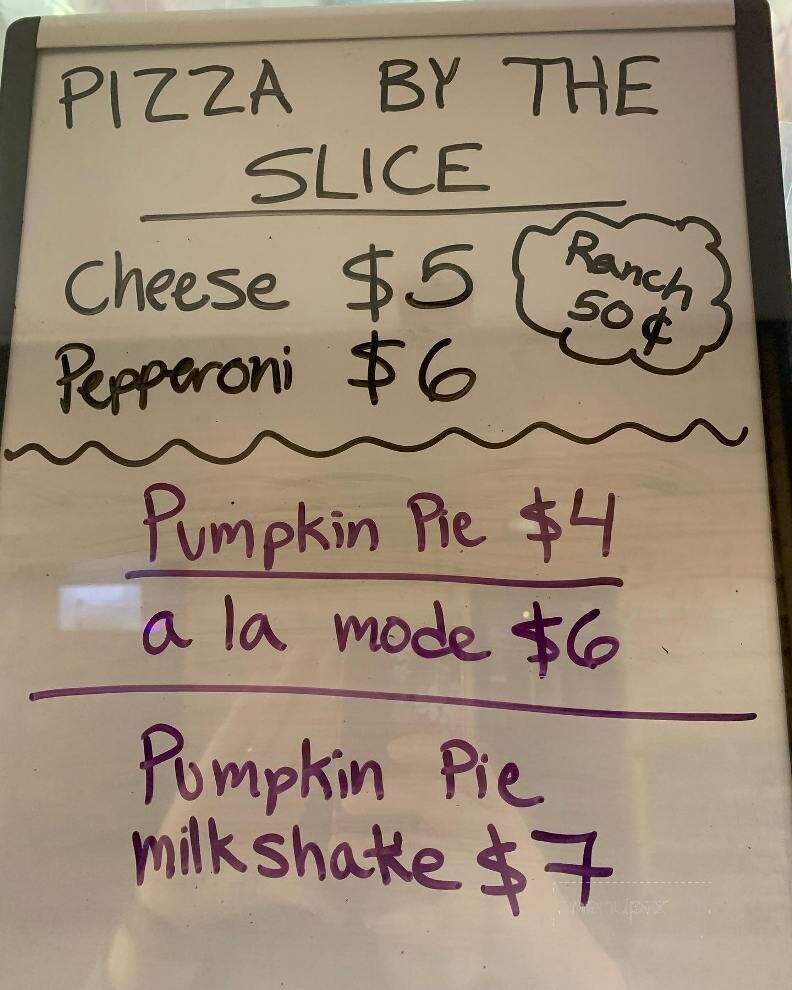 PIZZA BY THE
SLICE
Cheese $5
Ranch
50¢
Pepperoni $6
Pumpkin Pie $4
a la mode $6
Pumpkin Pie
milkshake $7
menupix